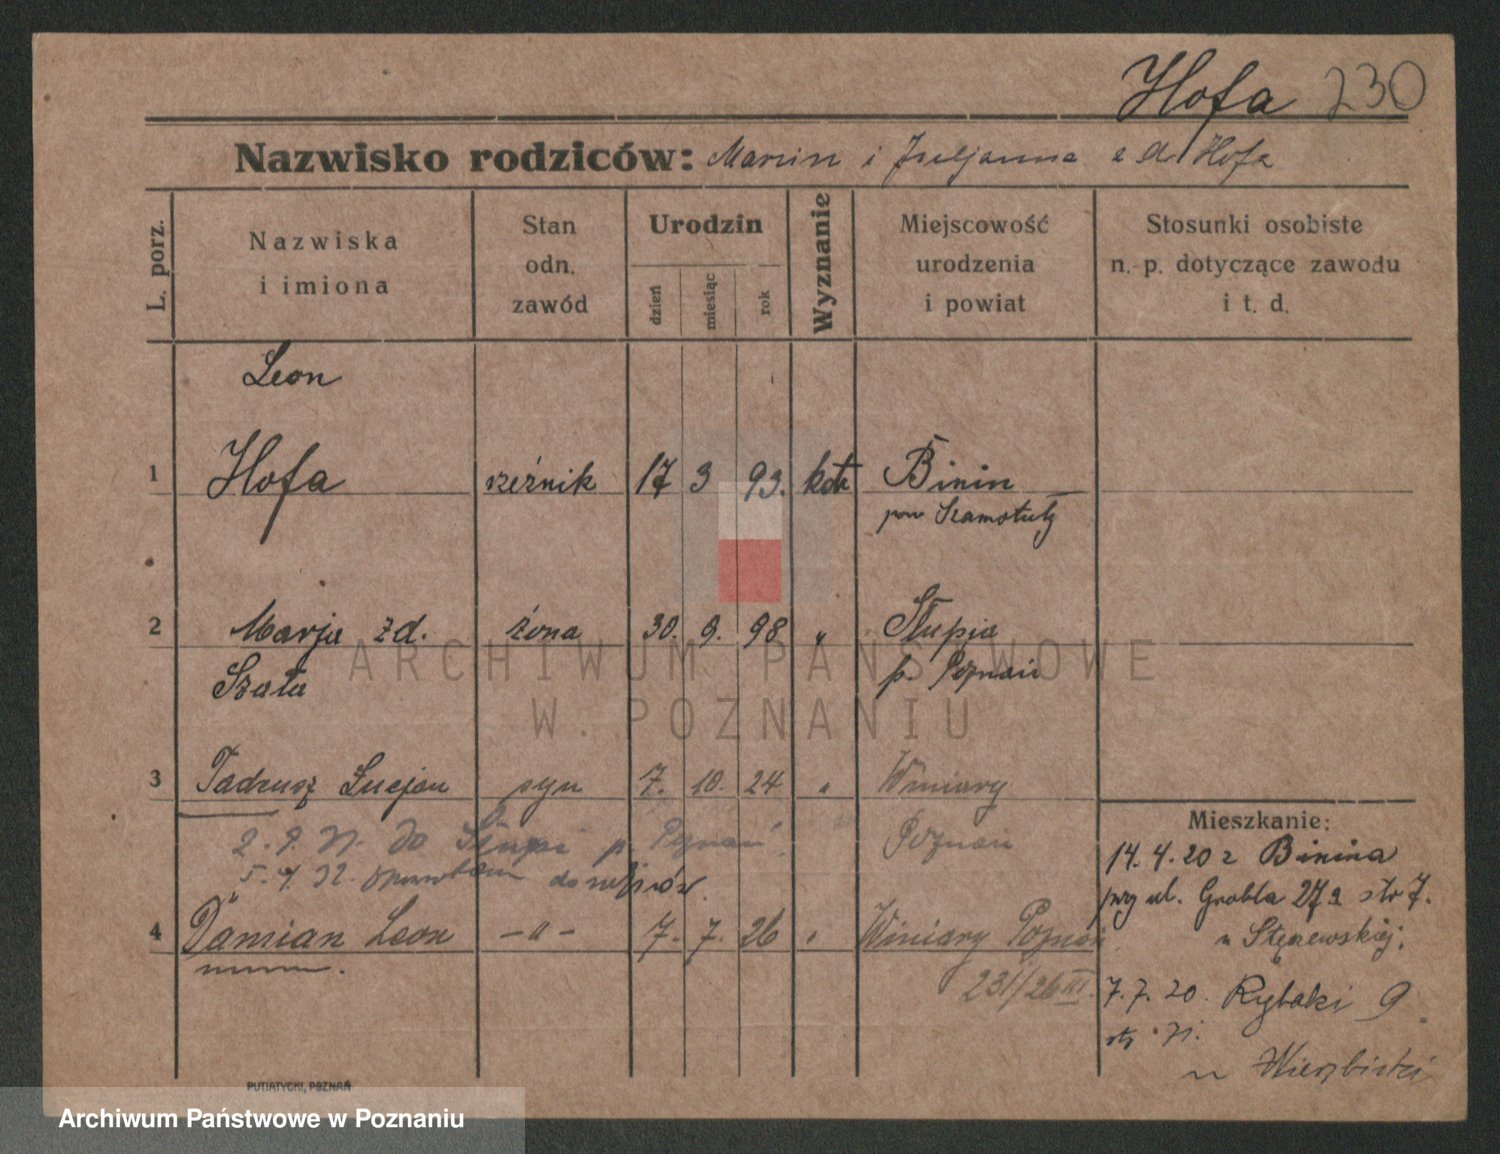 Hofa 230
Nazwisko rodziców: Marcin i Juljanna z d. Hofa
L. porz.
Nazwiska
i imiona
Stan
odn.
zawód
Urodzin
dzień
miesiąc
rok
Wyznanie
Miejscowość
urodzenia
i powiat
Stosunki osobiste
n.-p. dotyczące zawodu
i t. d.
Leon
1 Hofa rzeźnik 17 3 93. kath Binin
pow Szamotuły
2 Marja zd. żona 30. 9. 98 " Słupia
Szała p. Poznań
3 Tadeusz Lucjan syn 7. 10. 24 " Winiary
Poznań
2. 9. 31. do Słupi p. Poznań
5. 4. 32. do
4 Damian Leon -"- 7. 7. 26 " Winiary Poznań
231/26 III.
Mieszkanie:
14. 4. 20 z Binina
przy ul. Grobla 27a str 7.
u Stęszewskiej.
7. 7. 20. Rybaki 9
u Wierzbicki
PUTIATYCKI, POZNAŃ
ARCHIWUM PAŃSTWOWE
W POZNANIU
Archiwum Państwowe w Poznaniu